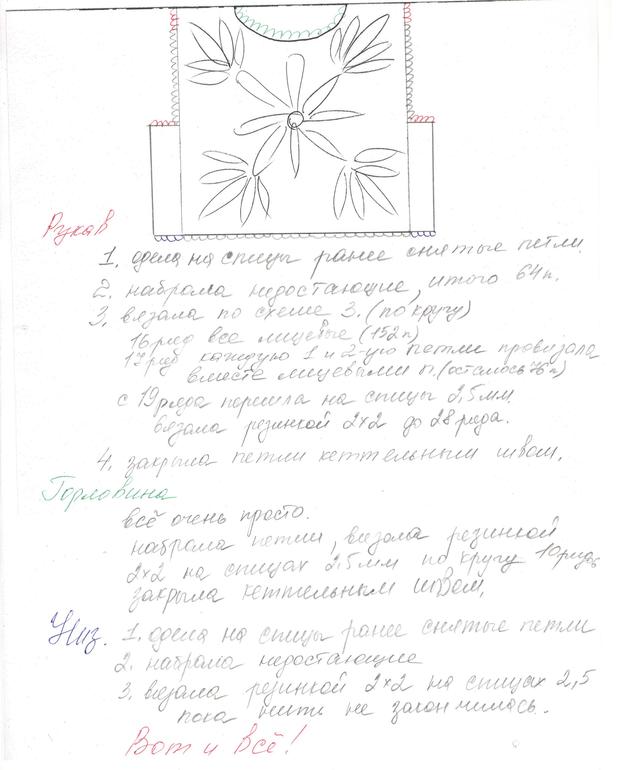 Рукав
1. одела на спицы ранее снятые петли.
2. набрала недостающие, итого 64п.
3. вязала по схеме 3. (по кругу)
16 ряд все лицевые (152п)
17 ряд каждую 1 и 2-ую петли провязала
вместе лицевыми п. (осталось 76п)
с 19 ряда перешла на спицы 2,5мм.
вязала резинкой 2х2 до 28 ряда.
4. закрыла петли кеттельным швом.
Горловина
всё очень просто.
набрала петли, вязала резинкой
2×2 на спицах 2,5мм по кругу 10 рядов
закрыла кеттельным швом.
Низ. 1. одела на спицы ранее снятые петли
2. набрала недостающие
3. вязала резинкой 2×2 на спицах 2,5
пока нити не закончились.
Вот и всё!